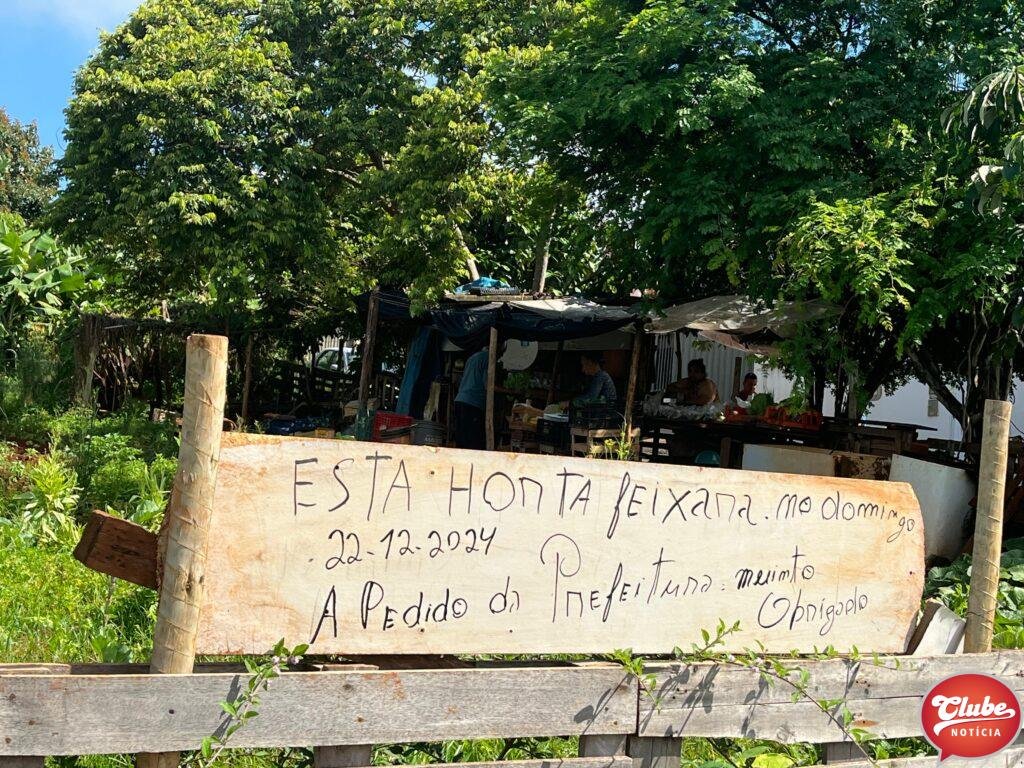 ESTA HORTA feixara. no domingo
. 22-12-2024
A Pedido da Prefeitura. muinto
Obrigado
Clube
NOTÍCIA